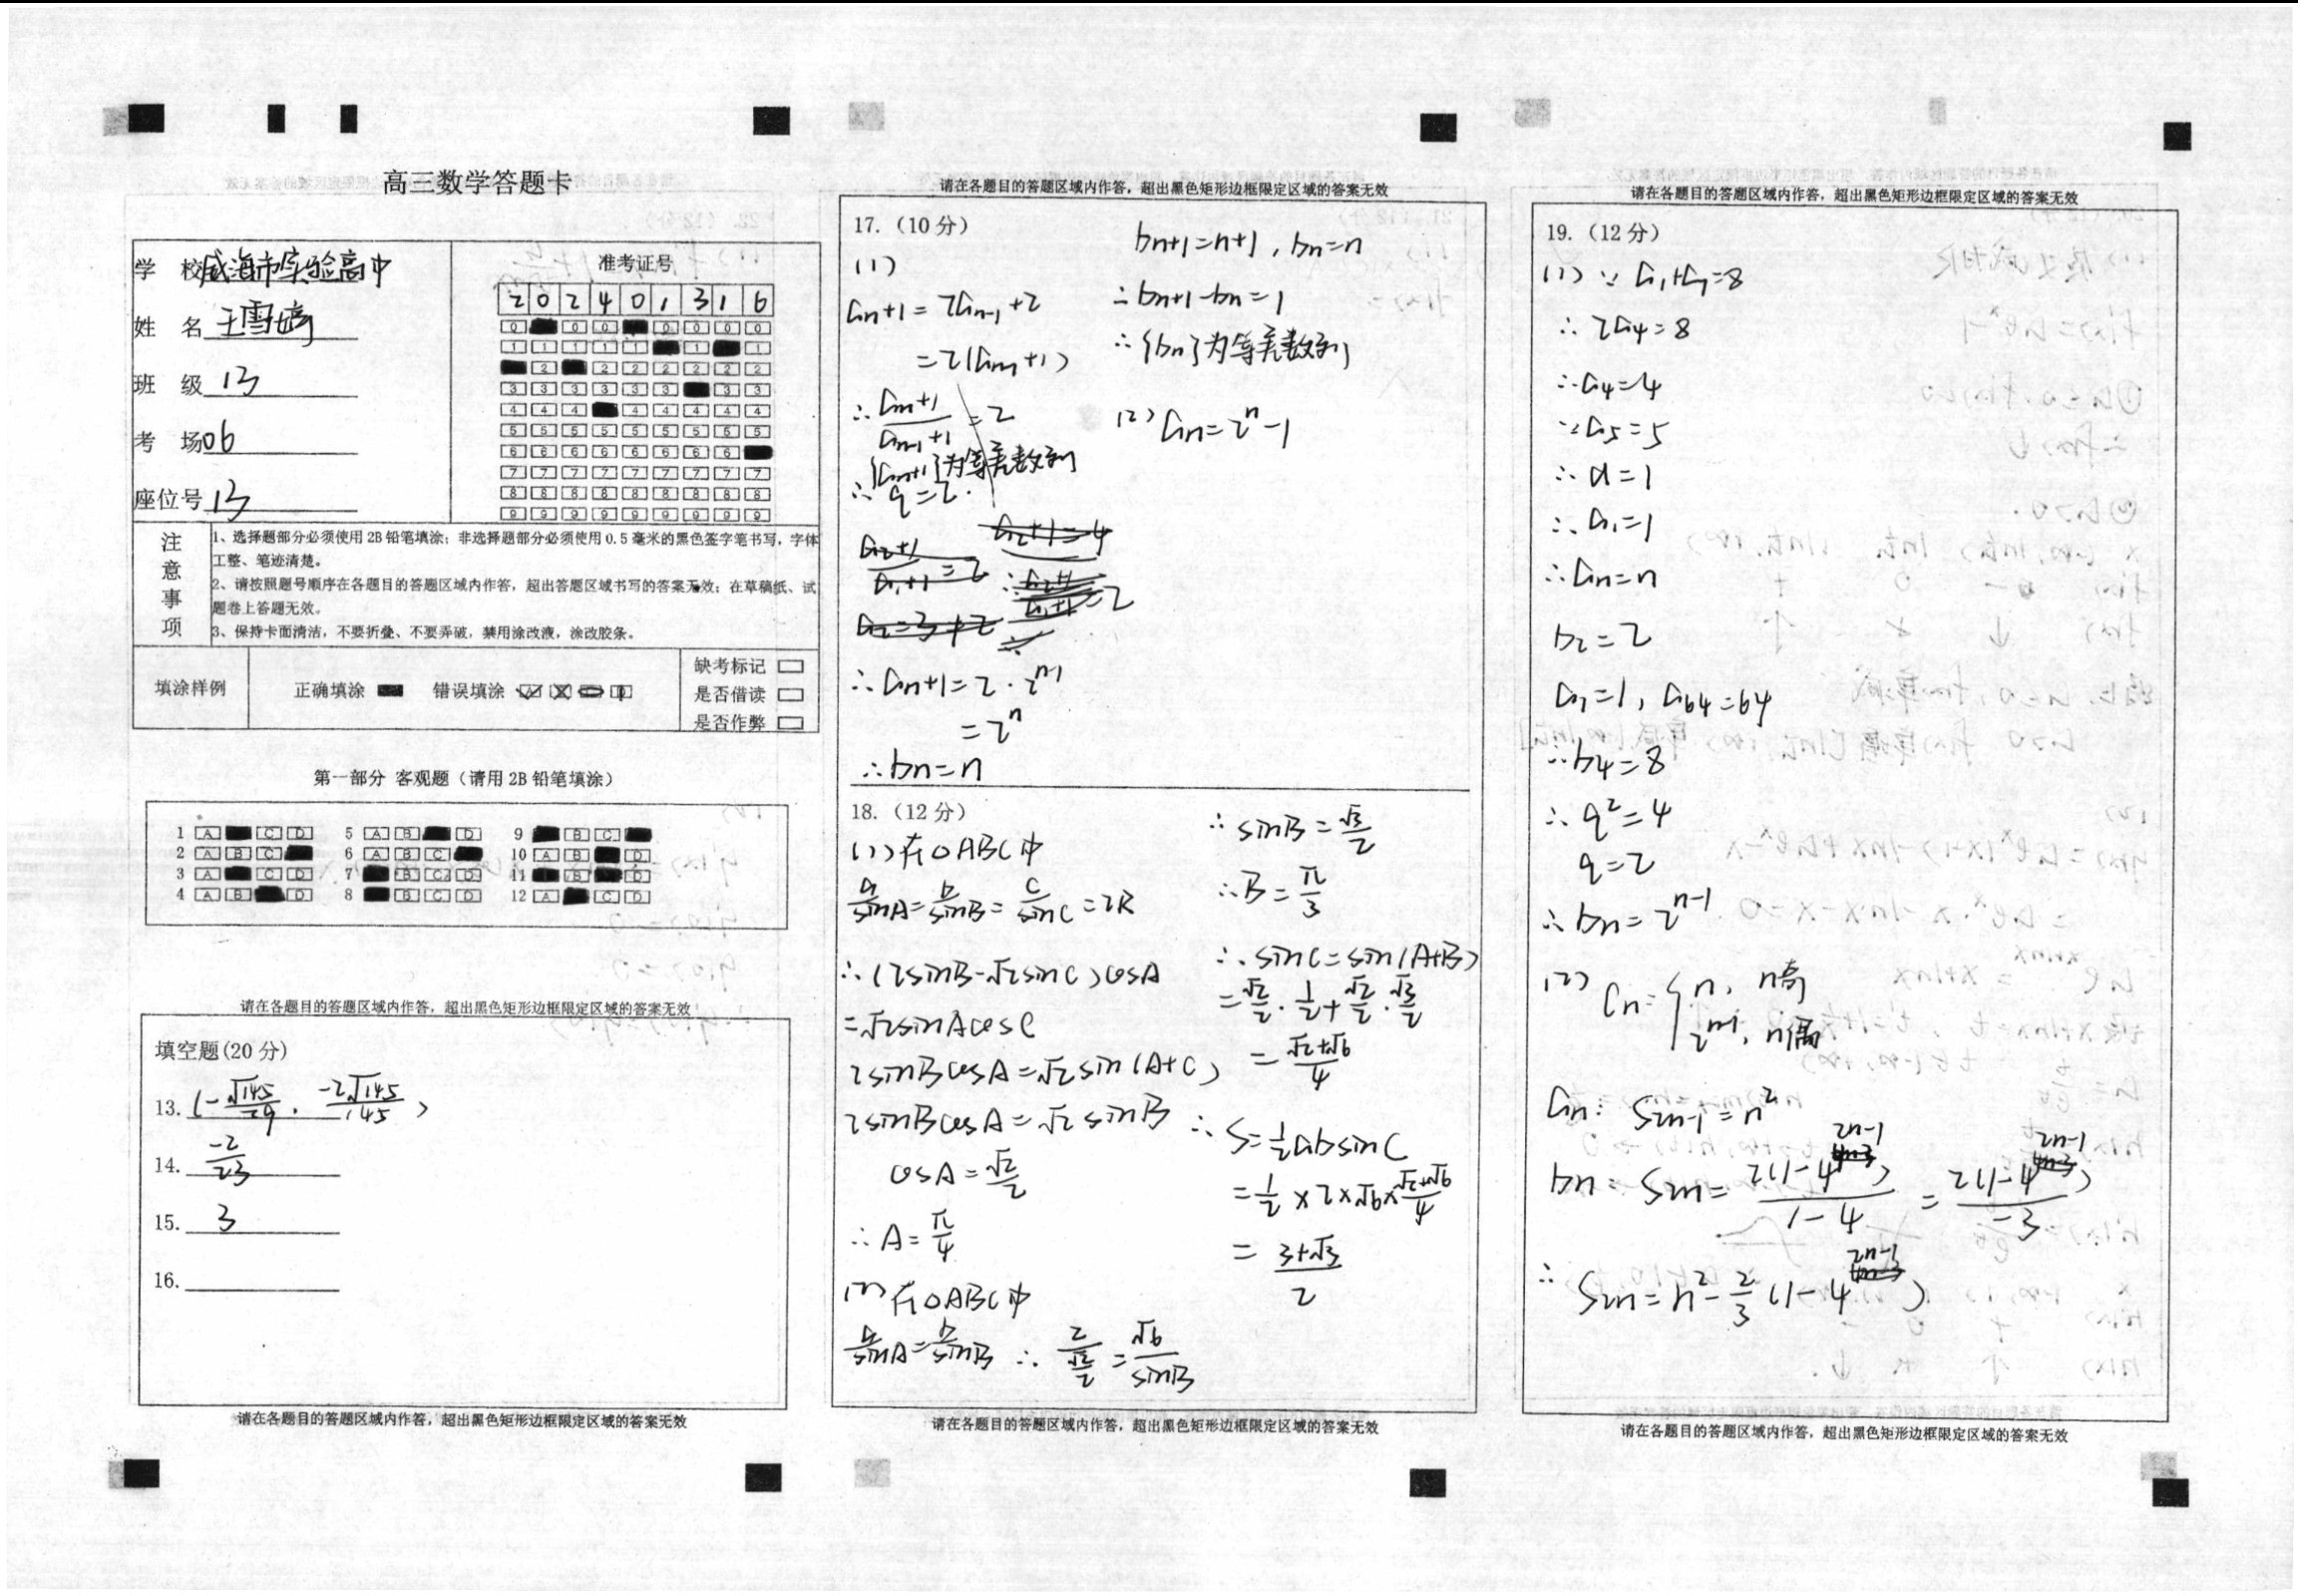 高三数学答题卡
学 校 威海市实验高中
姓 名 王雪嫡
班 级 13
考 场 06
座位号 13
准考证号
2 0 2 4 0 1 3 1 6
注意事项
1、选择题部分必须使用2B铅笔填涂；非选择题部分必须使用0.5毫米的黑色签字笔书写，字体
工整、笔迹清楚。
2、请按照题号顺序在各题目的答题区域内作答，超出答题区域书写的答案无效；在草稿纸、试
题卷上答题无效。
3、保持卡面清洁，不要折叠、不要弄破，禁用涂改液，涂改胶条。
填涂样例
正确填涂
错误填涂
缺考标记
是否借读
是否作弊
第一部分 客观题（请用2B铅笔填涂）
1 A C D 5 A B D 9 B C
2 A B C 6 A B C 10 A B D
3 A C D 7 B C D 11 B D
4 A B D 8 B C D 12 A C D
请在各题目的答题区域内作答，超出黑色矩形边框限定区域的答案无效
填空题(20分)
13. (-√145/29, -2√145/145)
14. -2/23
15. 3
16.
请在各题目的答题区域内作答，超出黑色矩形边框限定区域的答案无效
请在各题目的答题区域内作答，超出黑色矩形边框限定区域的答案无效
17.（10分）
(1)
an+1=2an-1+2
=2(an-1+1)
∴ an+1/an-1+1=2
{an+1}为等差数列
∴q=2.
∴an+1=2·2^n-1
=2^n
∴bn=n
bn+1=n+1, bn=n
∴bn+1-bn=1
∴{bn}为等差数列
(2) an=2^n-1
18.（12分）
(1)在△ABC中
a/sinA=b/sinB=c/sinC=2R
∴(2sinB-√2sinC)cosA
=√2sinAcosC
2sinBcosA=√2sin(A+C)
2sinBcosA=√2sinB
cosA=√2/2
∴A=π/4
(2)在△ABC中
a/sinA=b/sinB ∴ 2/(√2/2)=√6/sinB
∴sinB=√3/2
∴B=π/3
∴sinC=sin(A+B)
=√2/2·1/2+√2/2·√3/2
=(√2+√6)/4
∴S=1/2absinC
=1/2×2×√6×(√2+√6)/4
=(3+√3)/2
请在各题目的答题区域内作答，超出黑色矩形边框限定区域的答案无效
请在各题目的答题区域内作答，超出黑色矩形边框限定区域的答案无效
19.（12分）
(1)∵a1+a7=8
∴2a4=8
∴a4=4
∵a5=5
∴d=1
∴a1=1
∴an=n
b2=2
a1=1, a64=64
∴b4=8
∴q²=4
q=2
∴bn=2^n-1
(2) Cn={n, n奇
2^n-1, n偶
an: S2n-1=n²
bn: S2n=2(1-4^2n-1)/(1-4)=2(1-4^2n-1)/(-3)
∴S2n=n²-2/3(1-4^2n-1)
请在各题目的答题区域内作答，超出黑色矩形边框限定区域的答案无效